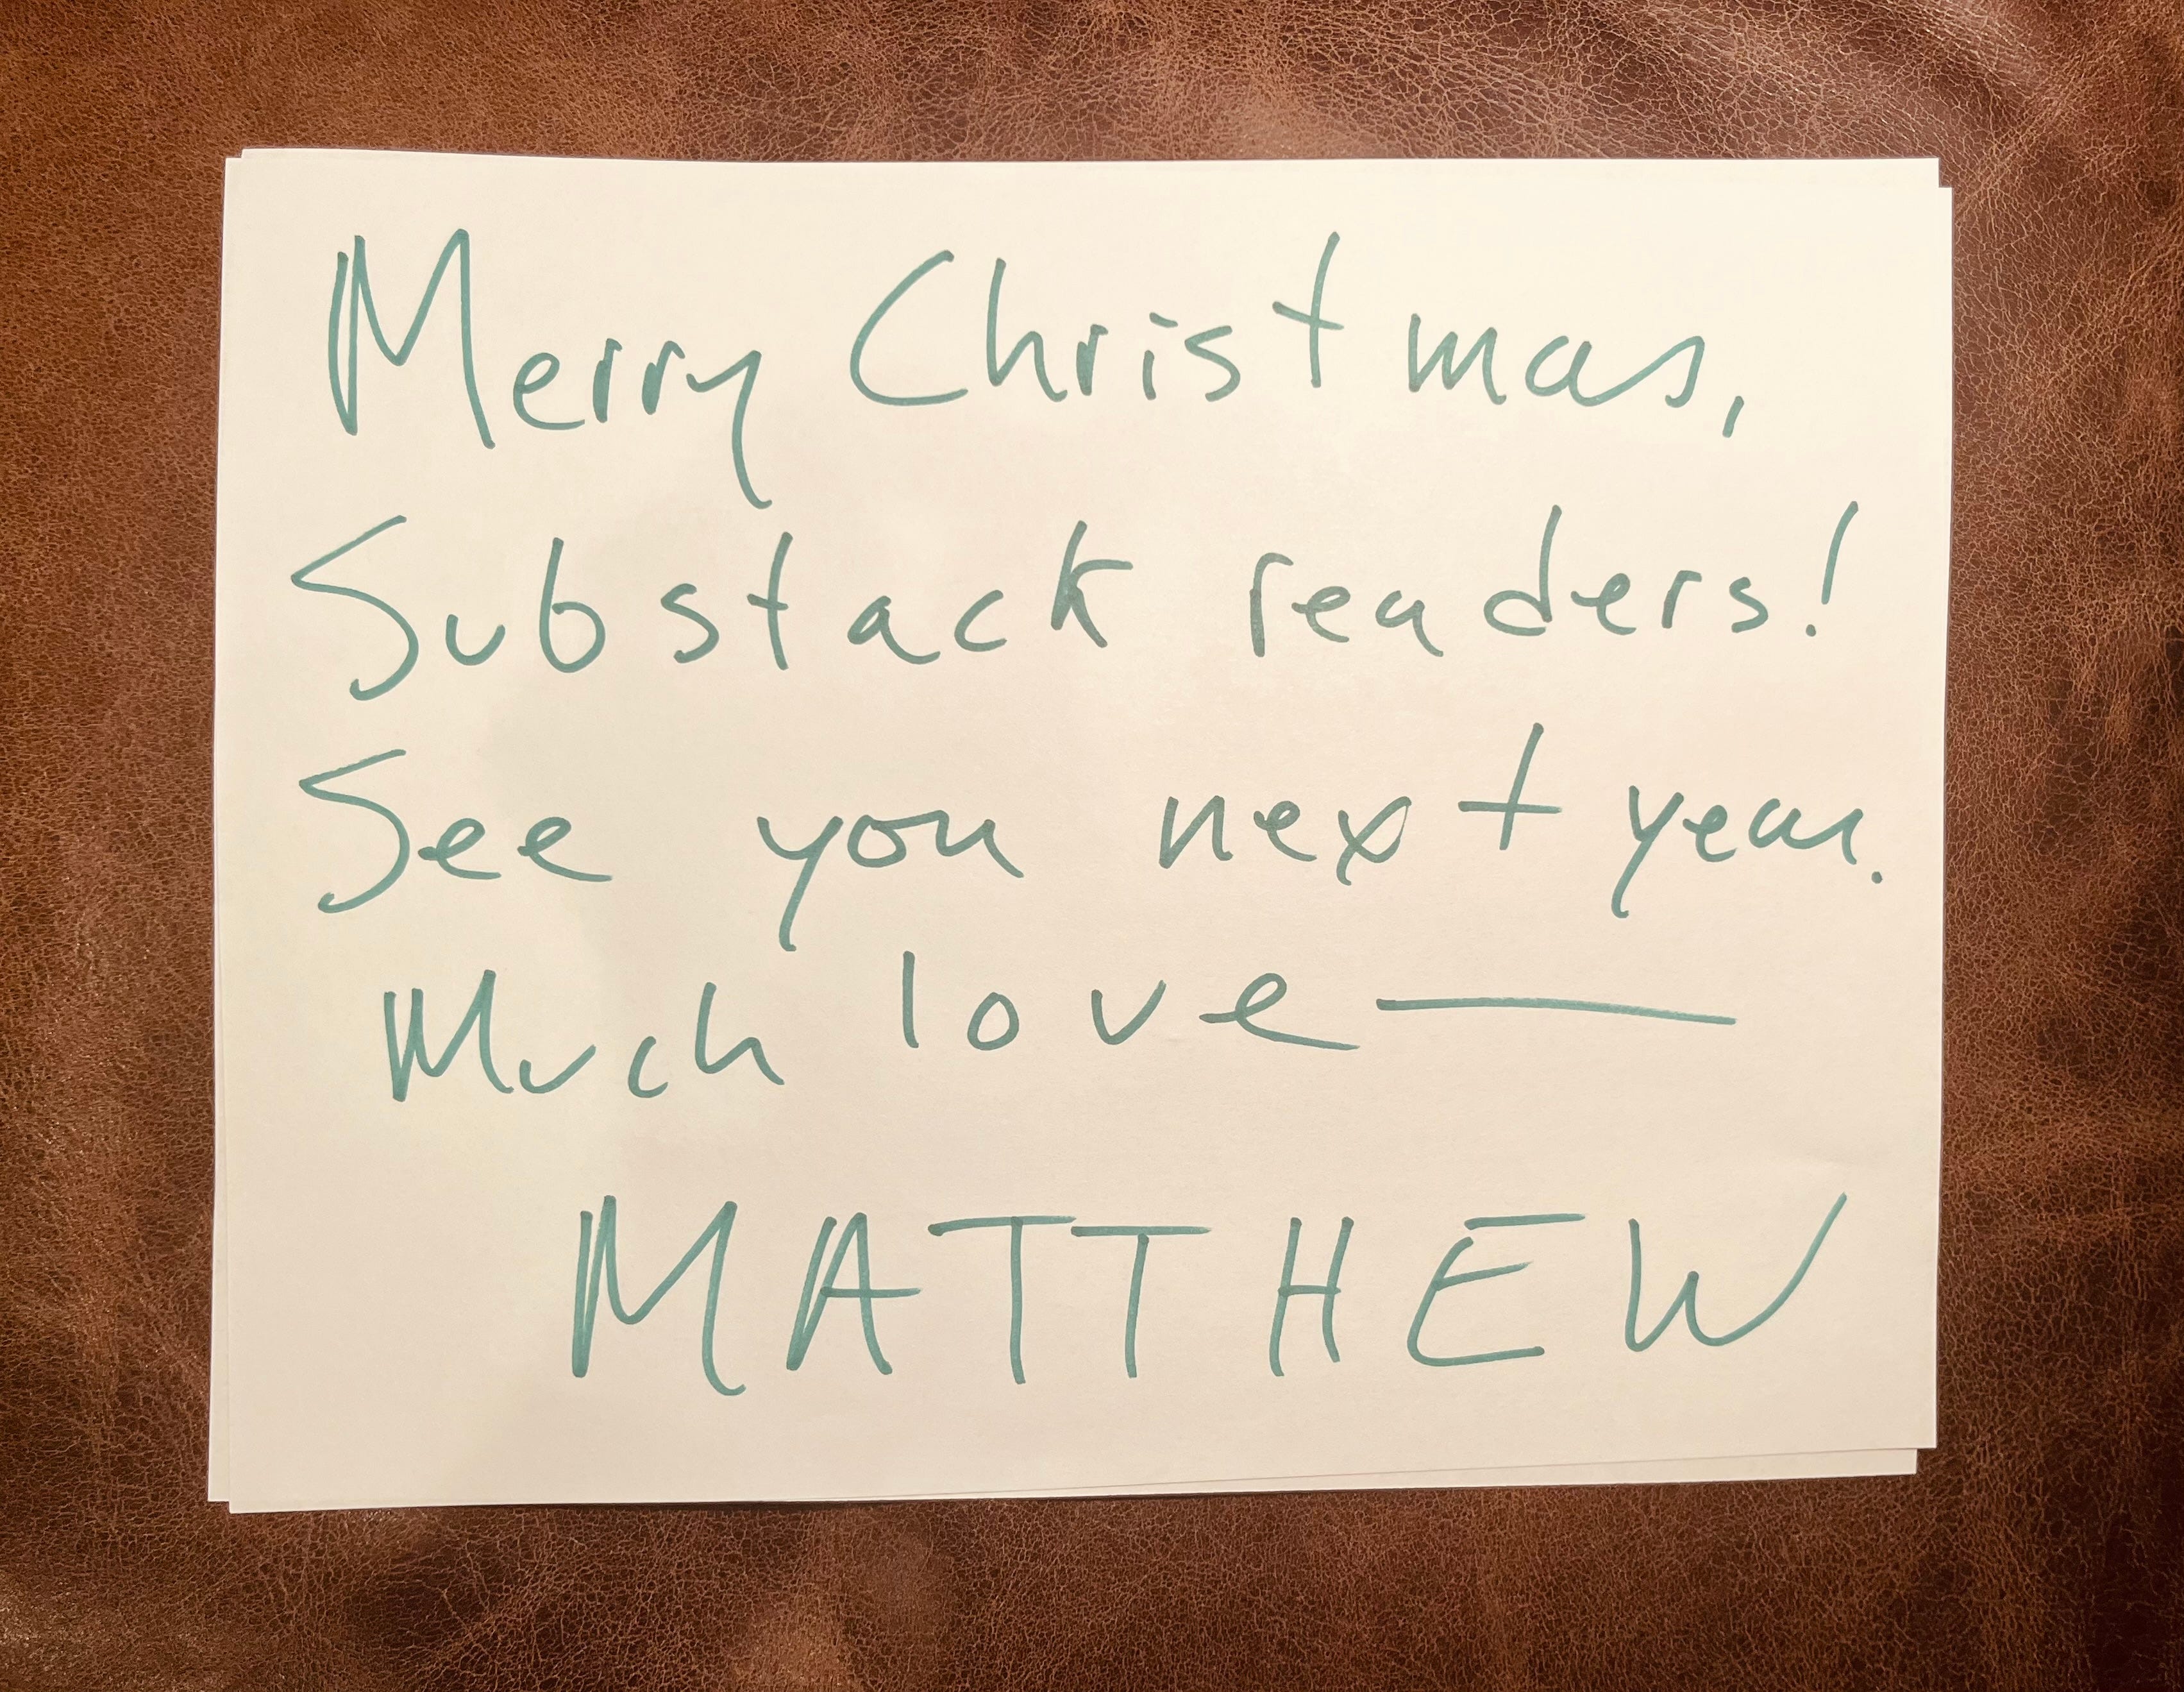 Merry Christmas,
Substack readers!
See you next year.
Much love—
MATTHEW